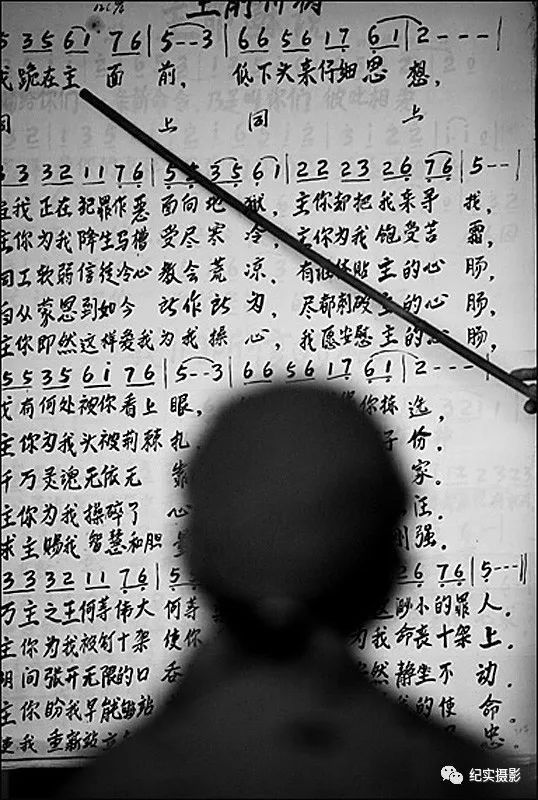 主前祈祷
5 3 5 6 i 7 6 | 5 - - 3 | 6 6 5 6 i 7 6 i | 2 - - - |
我跪在主 面 前， 低下头来仔细思 想，
同 上 同 上
3 3 3 2 1 1 7 6 | 5 5 3 5 6 1 | 2 2 2 3 2 6 7 6 | 5 - - |
当我正在犯罪作恶 面向地 狱， 主你却把我来寻 找，
主你为我降生马槽 受尽寒 冷， 主你为我 饱受苦 霜，
同工软弱信徒冷心 教会荒 凉， 有谁体贴 主的心 肠，
自从蒙恩到如今 所作所 为， 尽都刺破 主的心 肠，
主你即然这样爱我 为我操 心， 我愿安慰 主的心 肠，
5 5 3 5 6 i 7 6 | 5 - - 3 | 6 6 5 6 1 7 6 i | 2 - - - |
我有何处被你看上 眼， 你拣 选，
主你为我头被荆棘 扎， 子 份，
千万灵魂无依无 靠 家。
主你为我 操碎了 心 汪。
求主赐我 智慧和胆 量 刚强。
3 3 3 2 1 1 7 6 | 5 2 6 7 6 | 5 - - - ‖
万主之王何等伟大 何等 渺小的罪 人。
主你为我被钉十架 使你 为我 命丧十架 上。
阴间张开无限的口 吞 然 静坐不 动。
主你盼我早能够站 的使 命。
使我 重新站立 忠。
纪实摄影